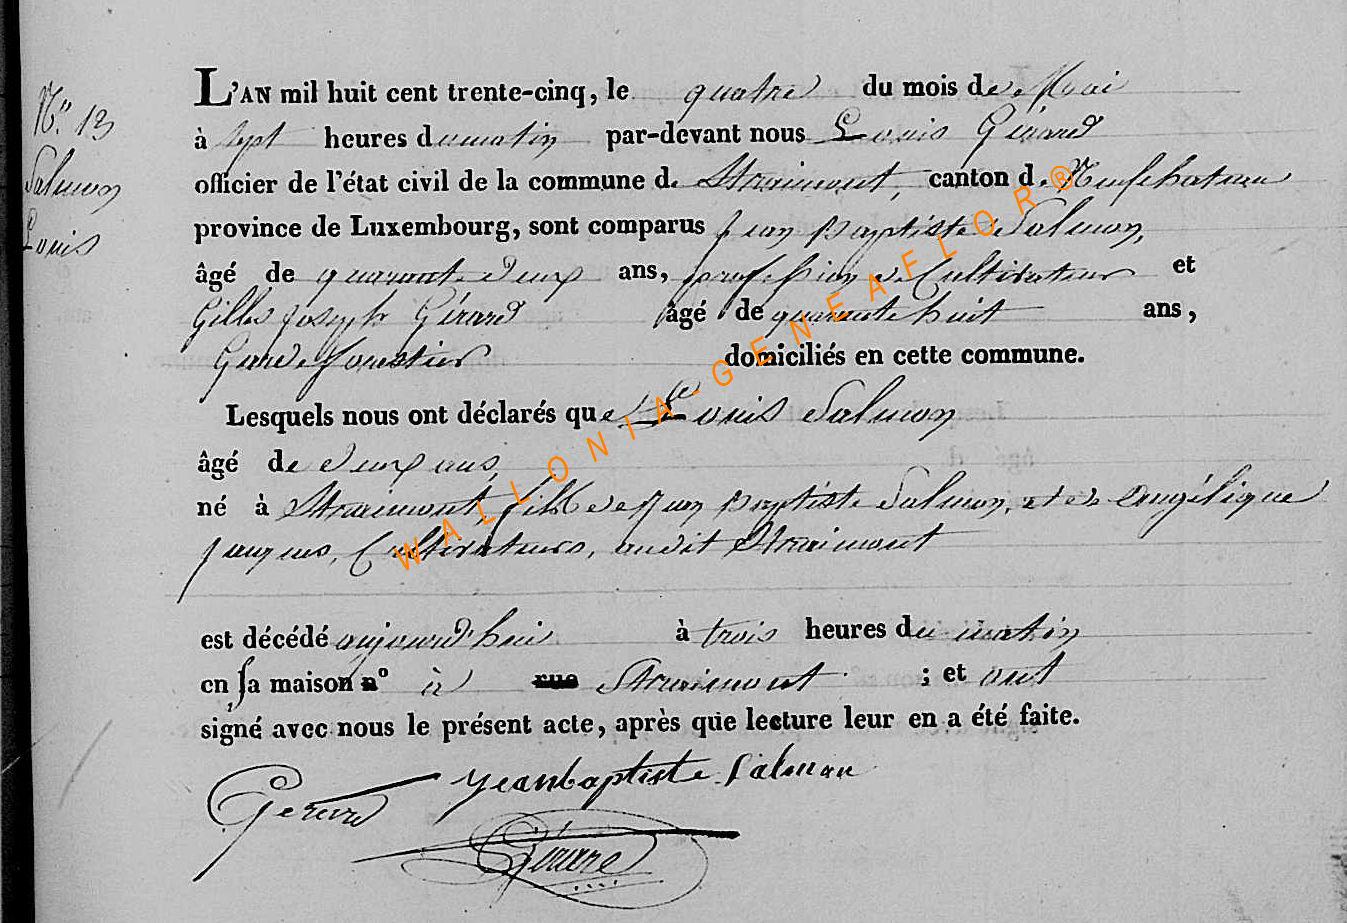 N.° 13
Salmon
Louis
L'AN mil huit cent trente-cinq, le quatre du mois de Mai
à sept heures du matin par-devant nous Louis Gérard
officier de l'état civil de la commune d. Straimont, canton d. Neufchateau
province de Luxembourg, sont comparus Jean Baptiste Salmon,
âgé de quarante deux ans, profession de Cultivateur et
Gilles Joseph Gérard âgé de quarante huit ans,
Garde forestier domiciliés en cette commune.
Lesquels nous ont déclarés que le Louis Salmon
âgé de deux ans,
né à Straimont, fils de Jean Baptiste Salmon, et de Angélique
Jaques, Cultivateurs, audit Straimont
est décédé aujourd'hui à trois heures du matin
en sa maison n° à rue Straimont ; et ont
signé avec nous le présent acte, après que lecture leur en a été faite.
Gerard Jeanbaptiste Salmon
Gérard
WALLONIA-GENEAFLOR®